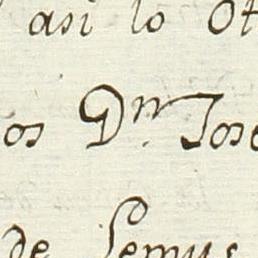 asi lo Ot
os Dⁿ. Jose
de Lemus